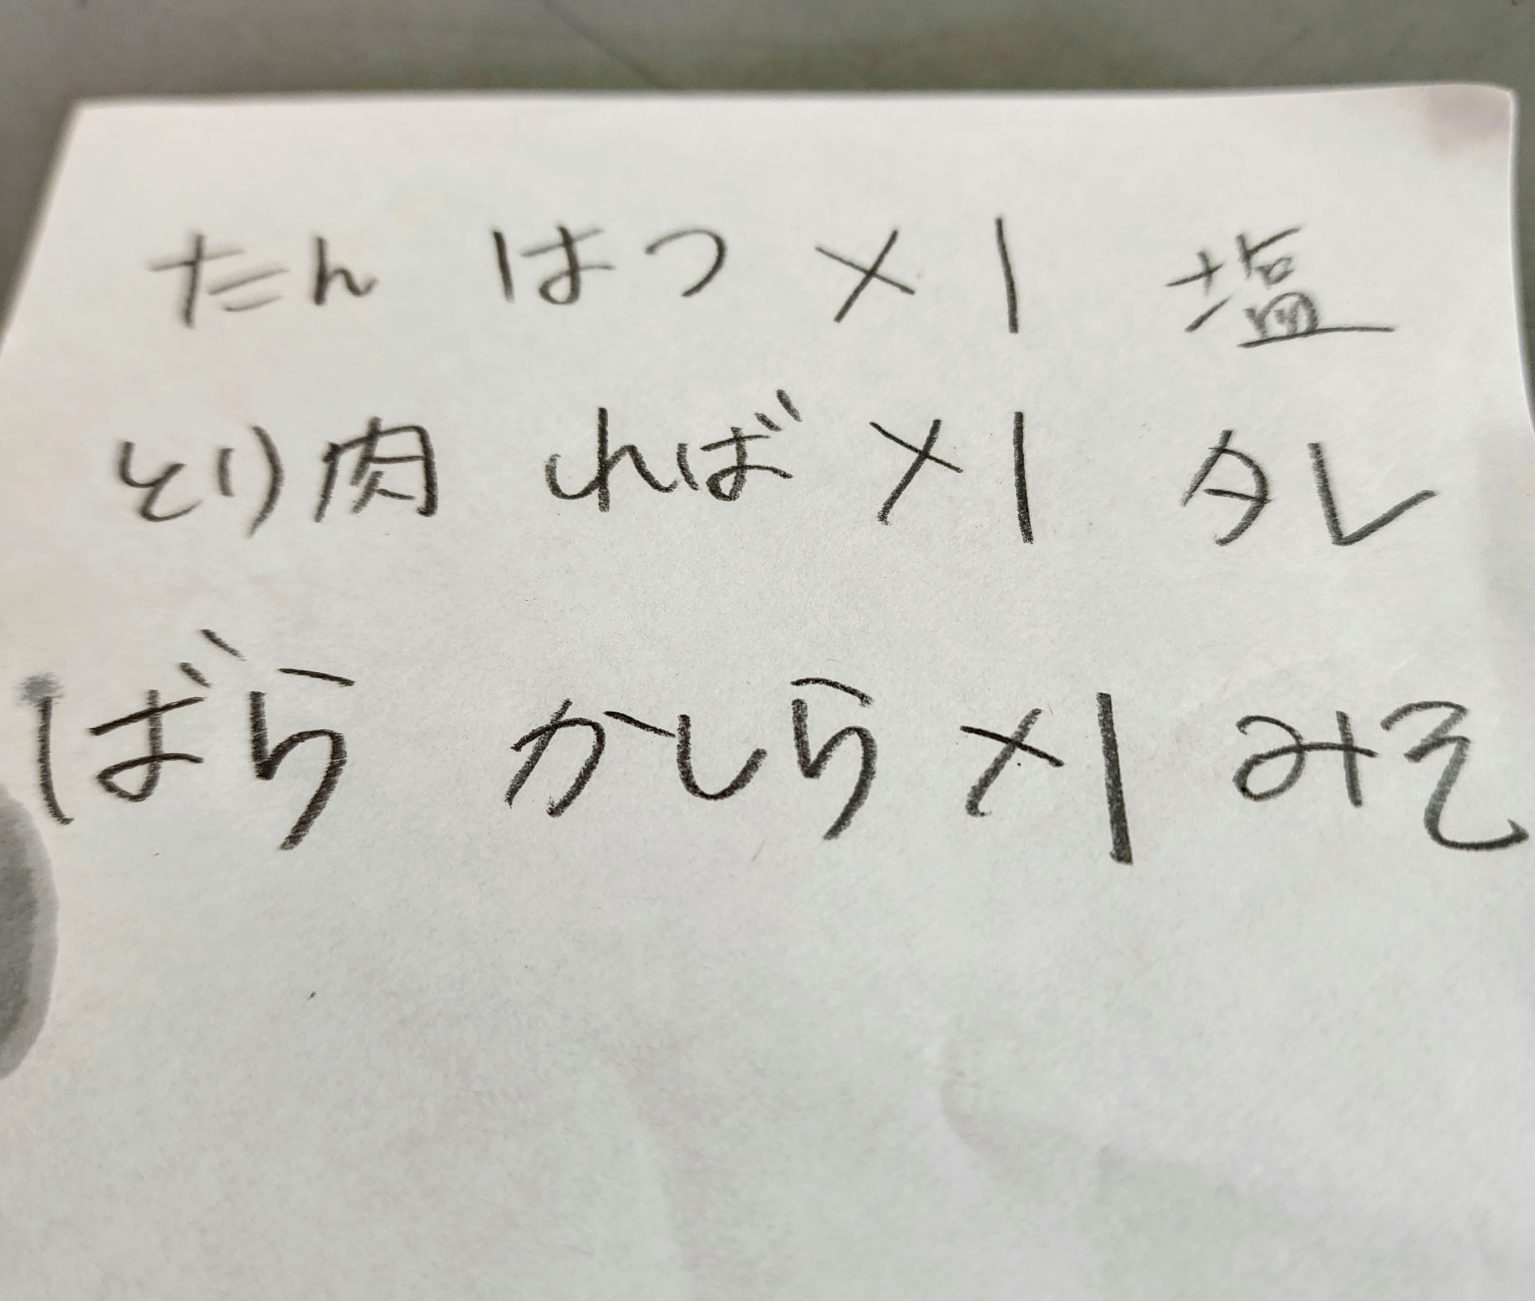 たん はつ ×1 塩
とり肉 ればー ×1 タレ
ばら かしら ×1 みそ